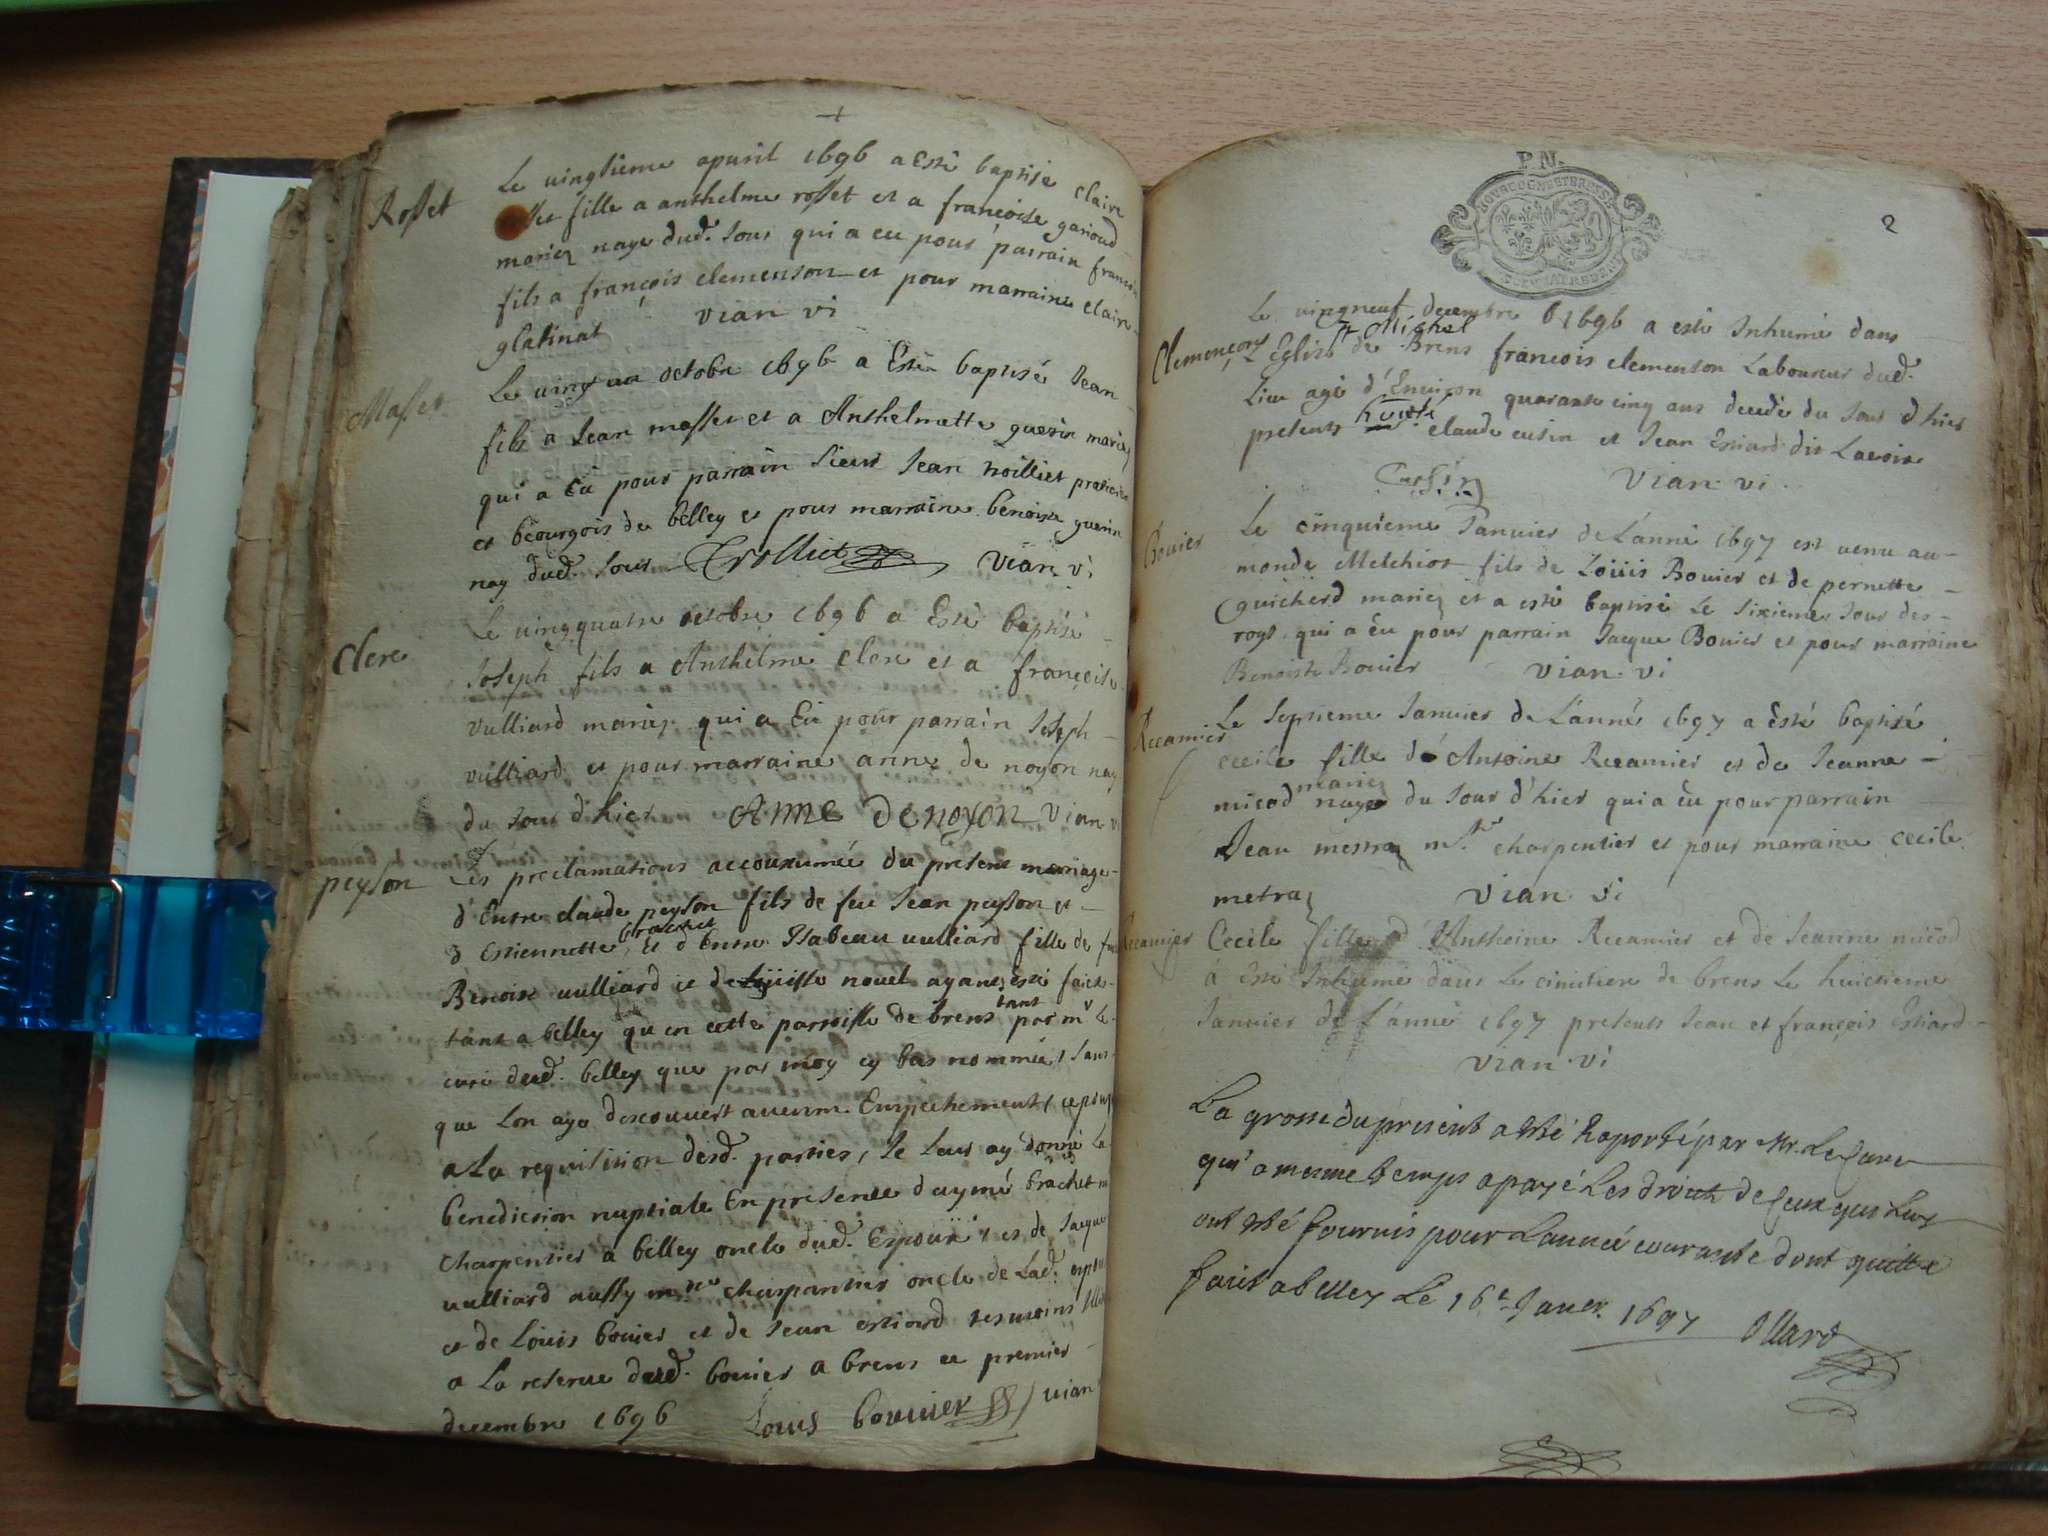 Rosset
Le vingtieme apuril 1696 a esté baptisé claire
fille a anthelme rosset et a francoise garioud
mariez naye dud. Jour qui a eu pour parrain
fils a françois clemenson et pour marraine claire
glatinat vian vi
Masset
Le vingt un octobre 1696 a Esté baptisé Jean
fils a Jean masset et a Anthelmette guerin mariez
qui a Eu pour parrain Sieur Jean praticien
et beourgois de belley et pour marraine benoiste guerin
nay dud. Jour Trolliet vian vi
Clerc
Le vingquatre octobre 1696 a Esté baptisé
Joseph fils a Anthelme clerc et a françoise
vulliard mariez qui a Eu pour parrain Joseph
vulliard et pour marraine anne de noyon nay
du Jour d'hier Anne De noyon vian vi
peyson
Les proclamations accoutumée du present mariage
d'Entre claude peyson fils de feu Jean peyson et
d'Estiennette brachet et d'Entre Isabeau vulliard fille de feu
Benoist vulliard et de nouel ayant esté faicte
tant a belley qu'en cette parroisse de brens tant par mr le
curé dud. belley que par moy cy bas nommée, Sans
que Lon aye descouvert aucun Empechement,
a La requisition desd. parties, Je Leur ay donné La
benediction nuptiale En presence d'aymé brachet
charpentier a belley oncle dud. Espoux, et de Jacque
vulliard aussy mtre charpantier oncle de Lad.
et de Louis bouier et de Jean estiard tesmoins
a La reserue dud. bouier a brens ce premier
decembre 1696 Louis bouuier vian
P.N.
2
Clemençon
Le vingneuf decembre 1696 a esté Inhumé dans
L'Eglise St Michel de Brens francois clemenson Laboureur dud.
Lieu agé d'Enuiron quarante cinq ans decedé du Jour d'hier
presents claude cusin et Jean Estiard dit Lavoise
Cussin Vian vi
Bouier
Le cinquieme Januier de L'anné 1697 est venu au
monde Melchior fils de Loüis Bouier et de pernette
guicherd mariez et a esté baptisé Le sixieme Jour des
roys qui a eu pour parrain Jacque Bouier et pour marraine
Benoiste Bouier vian vi
Recamier
Le Septieme Januier de L'anné 1697 a esté baptisé
cecile fille d'Antoine Recamier et de Jeanne
micod mariez naye du Jour d'hier qui a eu pour parrain
Jean mestraz mtre charpentier et pour marraine cecile
metraz vian vi
Recamier
Cecile fille d'Anthoine Recamier et de Jeanne micod
a Esté Inhumé dans Le cimitiere de brens Le huictieme
Januier de L'anné 1697 presents Jean et françois Estiard
vian vi
La grosse du present a esté Raporté par Mr. Le Curé
qui a mesme temps a payé Les droits de Ceux qui Luy
ont esté fournis pour L'année courante dont quitte
fait a belley Le 16e Janer. 1697 Ollard